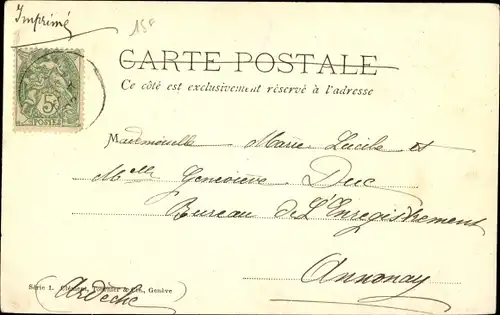 Imprimé
15F
CARTE POSTALE
Ce côté est exclusivement réservé à l'adresse
5c
POSTES
Mademoiselle Marie Lucile et
Melle Geneviève Duc
Bureau de L'Enregistrement
Annonay
Série 1. Clément, Tournier & Cie., Genève
(Ardèche)